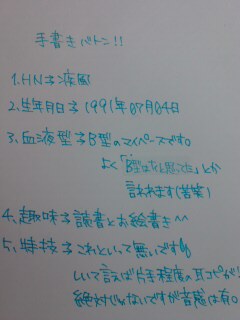 手書きバトン!!
1.HN子疾風
2.生年月日子1991年07月04日
3.血液型子B型のマイペースです。
よく「B型は」とか
言われます(苦笑)
4.趣味子読書とお絵書き^^
5.特技子これといって無いです
しいて言えば片手程度の耳コピが!
絶対じゃないですが音感は有。